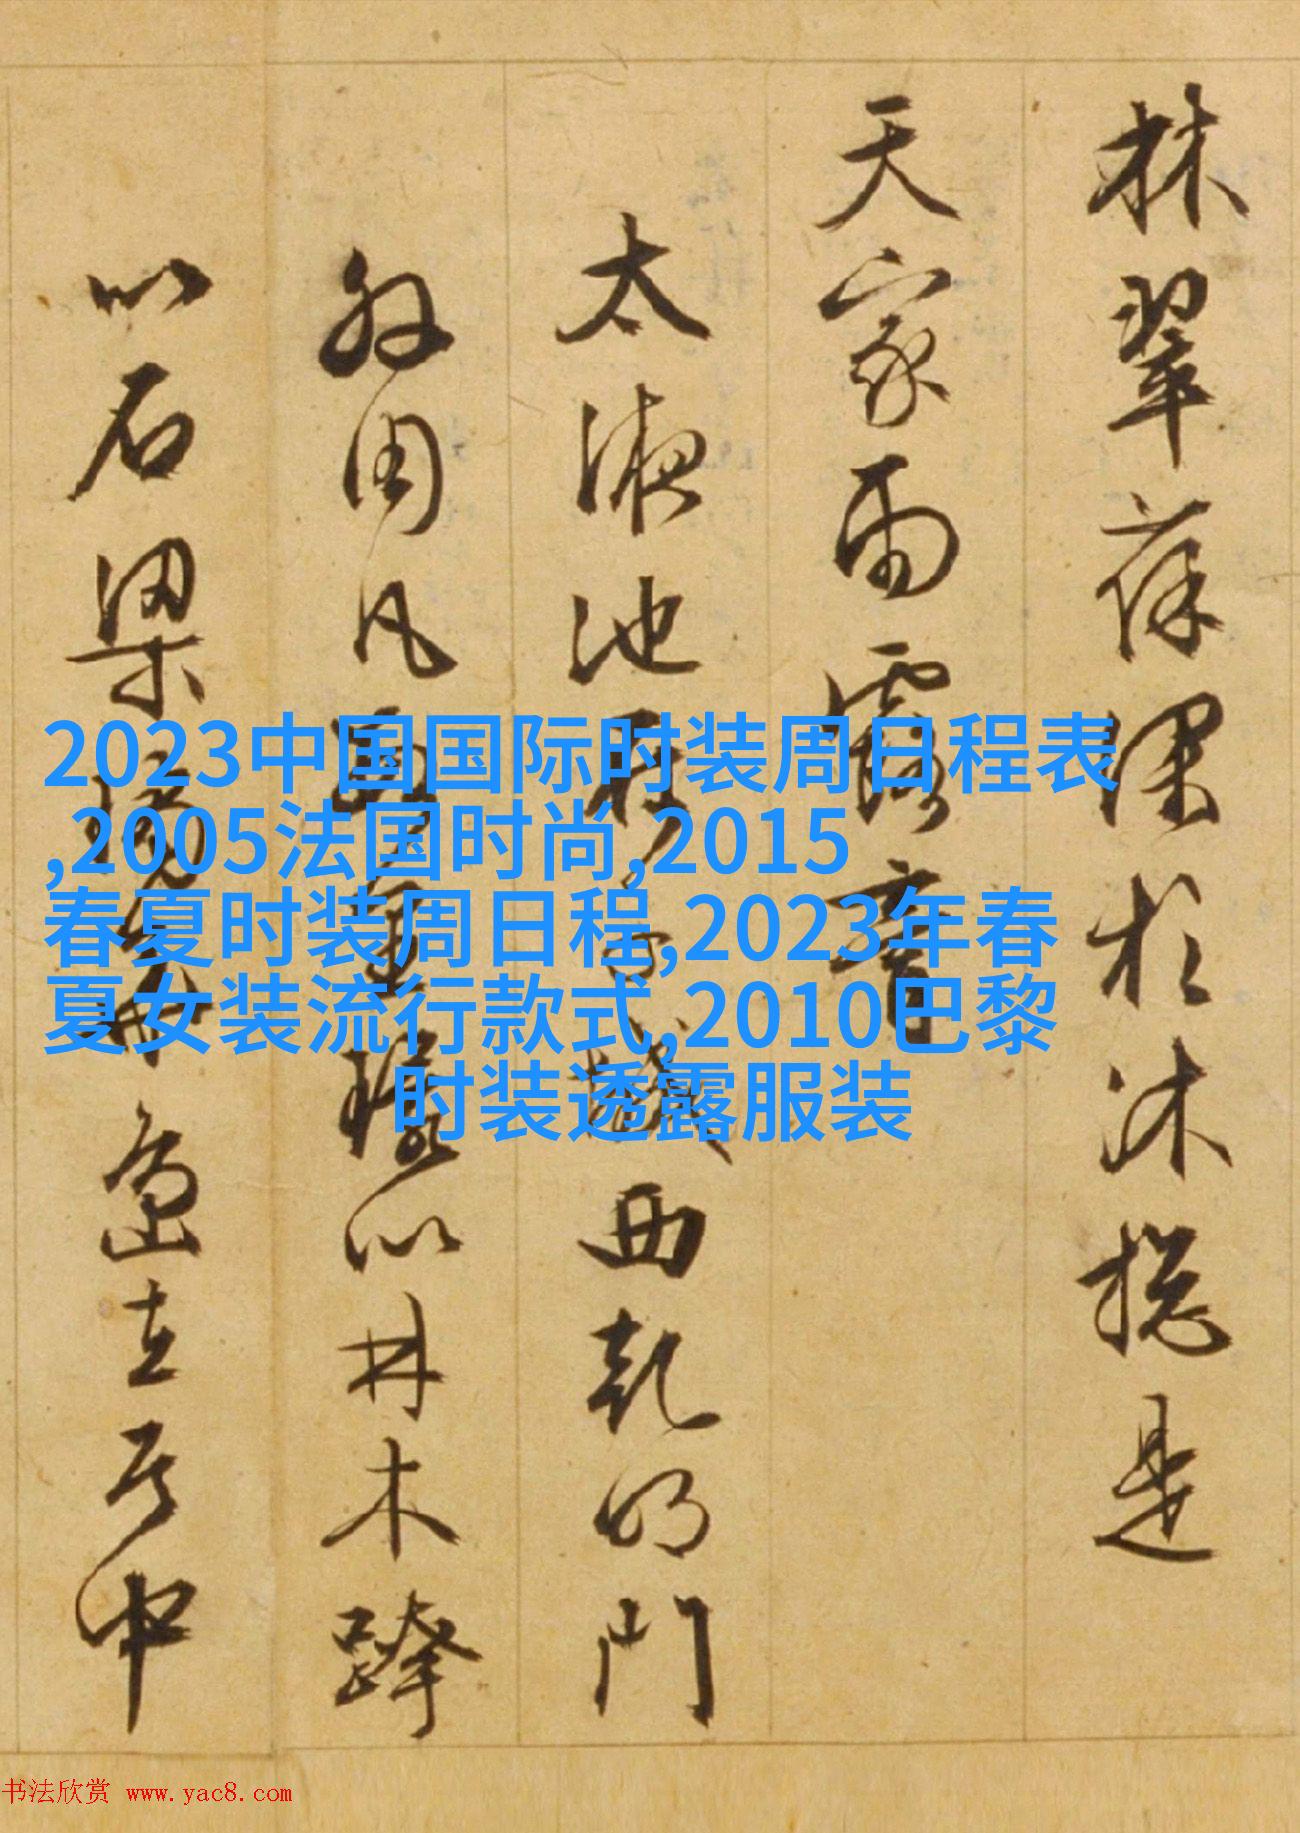 林翠葆深於沐揔是
天家雨露膏
太液池在子城西乾明門
外周凡數里環以林木跨
以石梁島立其中
2023中国国际时装周日程表
,2005法国时尚,2015
春夏时装周日程,2023年春
夏女装流行款式,2010巴黎
时装透露服装
书法欣赏 www.yac8.com